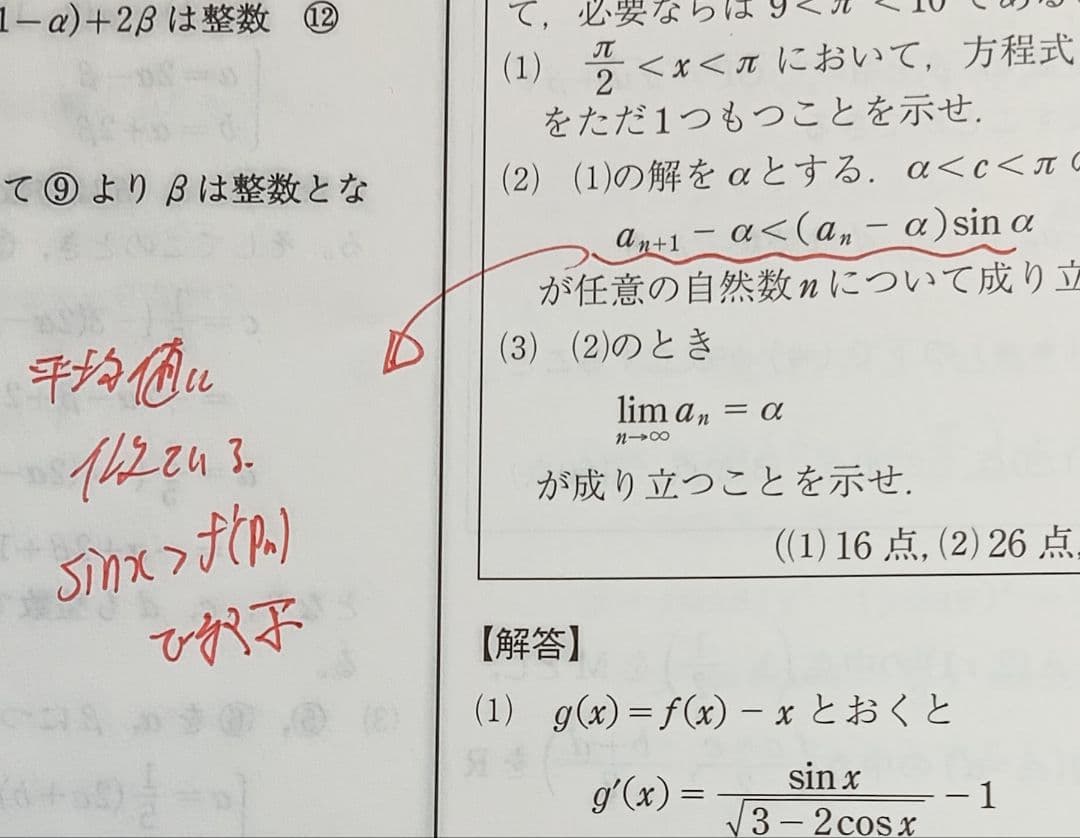 1−α)+2βは整数 ⑫
て⑨よりβは整数とな
平均値に
似ている.
sinx>f'(pn)
で終了
て, 必要ならば 9<π <10 である
(1) π/2 <x<π において, 方程式
をただ1つもつことを示せ.
(2) (1)の解をαとする. α<c<π の
aₙ₊₁ − α<(aₙ − α)sin α
が任意の自然数nについて成り立
(3) (2)のとき
lim aₙ = α
n→∞
が成り立つことを示せ.
((1) 16 点, (2) 26 点,
【解答】
(1) g(x)=f(x)−x とおくと
g′(x)= sin x/√3−2cos x −1